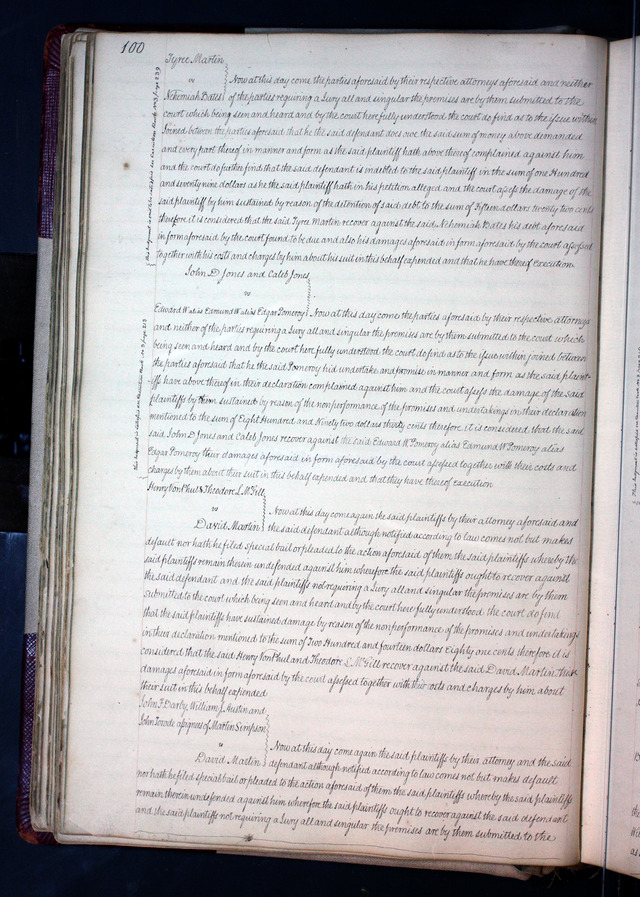 100
Tyree Martin
vs
Now at this day come the parties aforesaid by their respective attorneys aforesaid and neither
Nehemiah Bates of the parties requiring a Jury all and singular the premises are by them submitted to the
court which being seen and heard and by the court here fully understood the court do find as to the issue within
Joined between the parties aforesaid that he the said defendant does owe the said sum of money above demanded
and every part thereof in manner and form as the said plaintiff hath above thereof complained against him
and the court do further find that the said defendant is indebted to the said plaintiff in the sum of one Hundred
and seventy nine dollars as he the said plaintiff hath in his petition alleged and the court assess the damage of the
said plaintiff by him sustained by reason of the detention of said debt to the sum of Fifteen dollars twenty two cents
therefore it is considered that the said Tyree Martin recover against the said Nehemiah Bates his debt aforesaid
in form aforesaid by the court found to be due and also his damages aforesaid in form aforesaid by the court assessed
together with his costs and charges by him about his suit in this behalf expended and that he have thereof execution
John D Jones and Caleb Jones
vs
Edward W alias Edmund W alias Edgar Pomeroy Now at this day come the parties aforesaid by their respective attorneys
and neither of the parties requiring a Jury all and singular the premises are by them submitted to the court which
being seen and heard and by the court here fully understood the court do find as to the issue within joined between
the parties aforesaid that he the said Pomeroy did undertake and promise in manner and form as the said plaint-
iffs have above thereof in their declaration complained against him and the court assess the damage of the said
plaintiffs by them sustained by reason of the nonperformance of the promises and undertakings in their declaration
mentioned to the sum of Eight Hundred and Ninety two dollars thirty cents therefore it is considered that the said
said John D Jones and Caleb Jones recover against the said Edward W Pomeroy alias Edmund W Pomeroy alias
Edgar Pomeroy their damages aforesaid in form aforesaid by the court assessed together with their costs and
charges by them about their suit in this behalf expended and that they have thereof execution
Henry Von Phul & Theodore L McGill
vs
Now at this day come again the said plaintiffs by their attorney aforesaid and
David Martin the said defendant although notified according to law comes not but makes
default nor hath he filed special bail or pleaded to the action aforesaid of them the said plaintiffs whereby the
said plaintiffs remain therein undefended against him wherefore the said plaintiffs ought to recover against
the said defendant and the said plaintiffs not requiring a Jury all and singular the premises are by them
submitted to the court which being seen and heard and by the court here fully understood the court do find
that the said plaintiffs have sustained damage by reason of the nonperformance of the promises and undertakings
in their declaration mentioned to the sum of Two Hundred and fourteen dollars Eighty one cents therefore it is
considered that the said Henry Von Phul and Theodore L McGill recover against the said David Martin their
damages aforesaid in form aforesaid by the court assessed together with their costs and charges by him about
their suit in this behalf expended
John F Darby, William J Austin and
John Towde assignees of Martin Simpson
vs
Now at this day come again the said plaintiffs by their attorney and the said
David Martin defendant although notified according to law comes not but makes default
nor hath he filed special bail or pleaded to the action aforesaid of them the said plaintiffs whereby the said plaintiffs
remain therein undefended against him wherefore the said plaintiffs ought to recover against the said defendant
and the said plaintiffs not requiring a Jury all and singular the premises are by them submitted to the